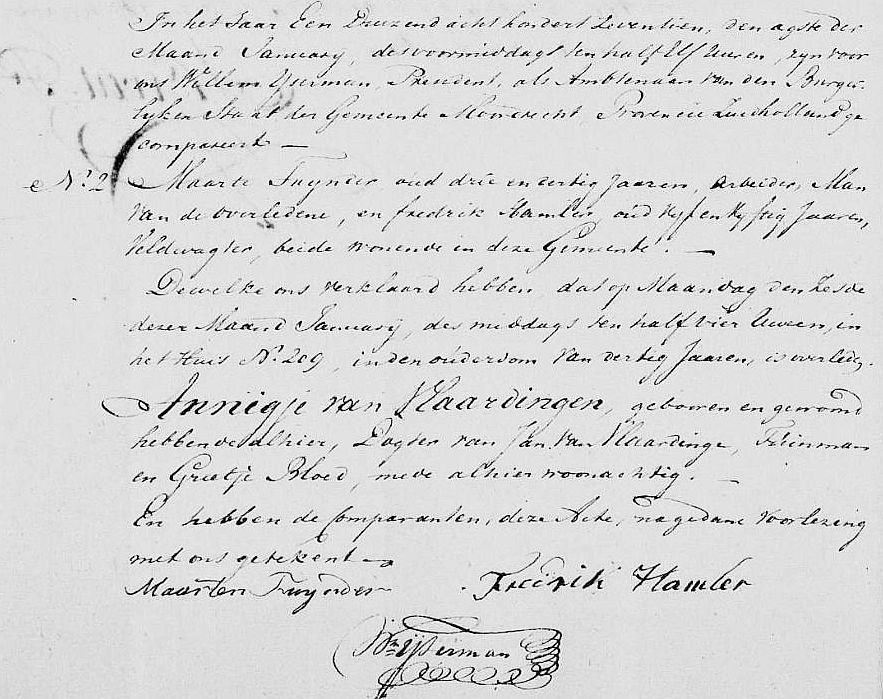 In het Jaar Een Duizend acht hondert Zeventien, den agste der
Maand January, des voormiddags ten half Elf Uuren, zyn voor
ons Willem Yserman, President, als Ambtenaar van den Burge-
lyken Staat der Gemeente Moordrecht Provencie Zuidholland ge
compareert —
N.º 2 Maarte Tuynder, oud drie en dertig Jaaren, Arbeider, Man
van de overledene, en fredrik Hamler, oud vyf en vyftig Jaaren,
Veldwagter, beide wonende in deze Gemeente. —
Dewelke ons verklaard hebben, dat op Maandag den Zesde
dezer Maand January, des middags ten half vier Uuren, in
het Huis N.º 209, in den ouderdom van dertig Jaaren, is overleden.
Annigje van Vlaardingen, gebooren en gewoond
hebbende alhier, Dogter van Jan van Vlaardinge, Tuinman
en Grietje Bloed, mede alhier woonachtig. —
En hebben de Comparanten, deze Acte, na gedane voorlezing
met ons getekent —
Maarten Tuynder Fredrik Hamler
Wm Yserman